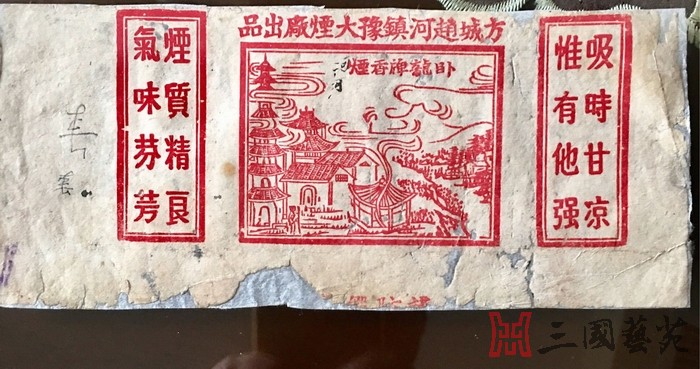 方城趙河鎮豫大煙廠出品
卧龍牌香煙
吸時甘凉
惟有他强
煙質精良
氣味芬芳
三國藝苑